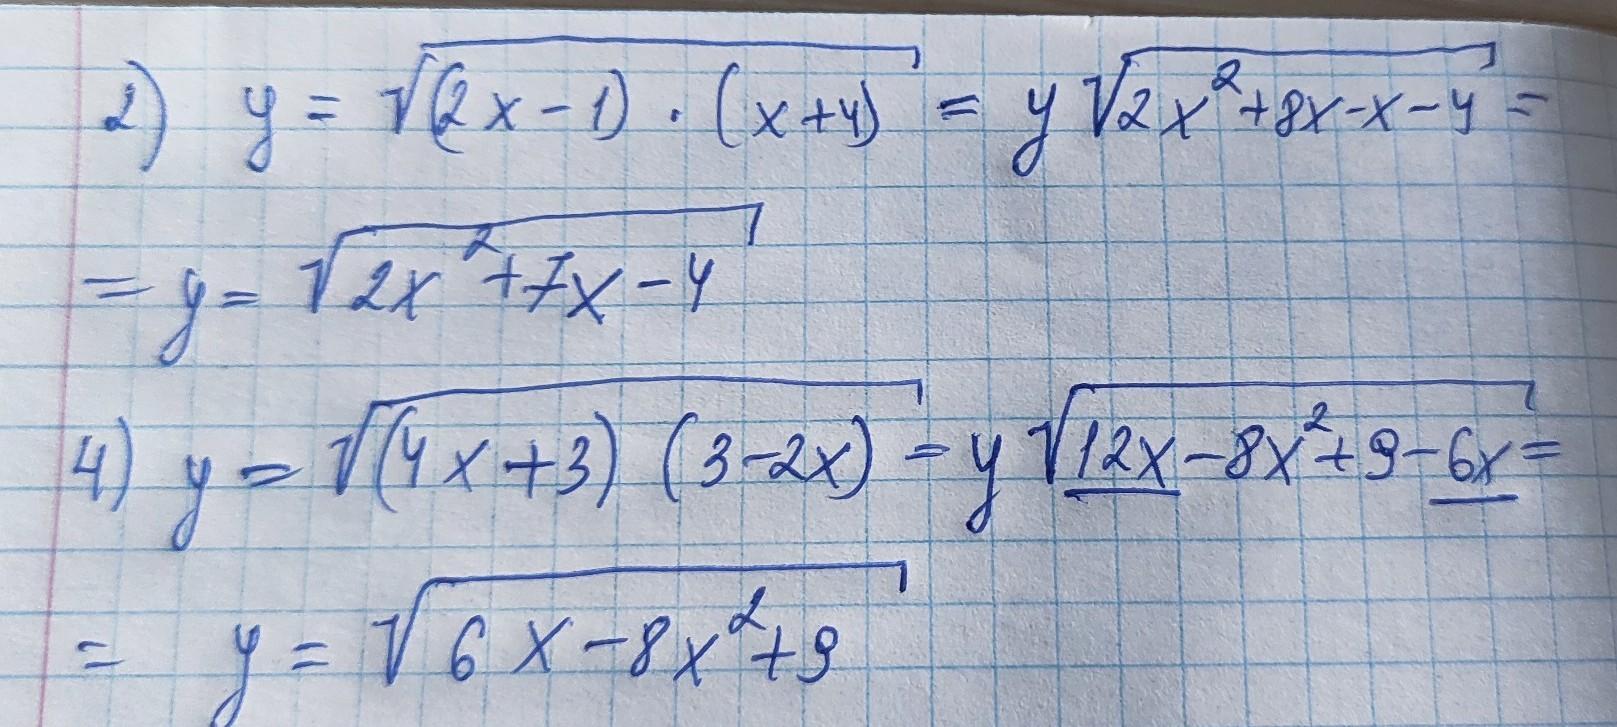 2) y = √(2x-1) · (x+4) = y √2x²+8x-x-4 =
= y = √2x²+7x-4
4) y = √(4x+3) (3-2x) = y √12x-8x²+9-6x =
= y = √6x-8x²+9